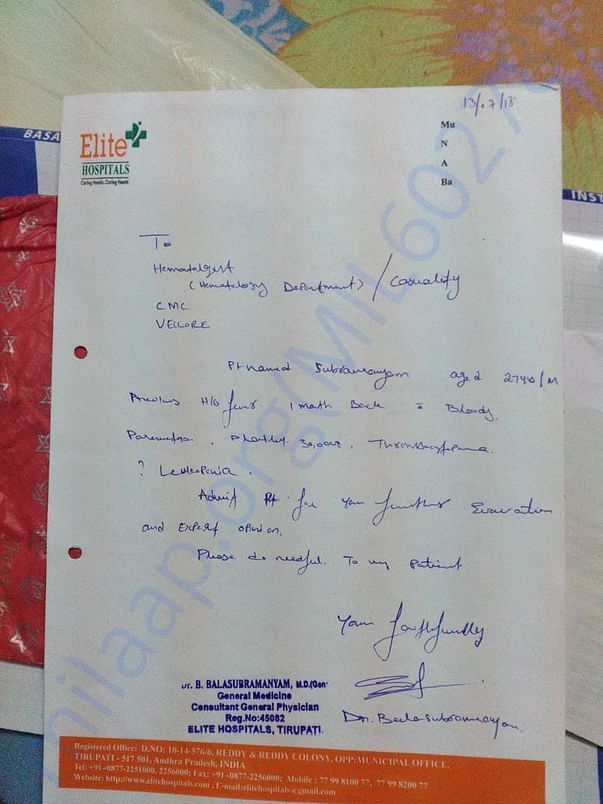 13/07/18
Elite
HOSPITALS
Caring Hands..Caring Hearts
Mu
N
A
Ba
BASA
INST
To
Hematologist
(Hematology Department) / Casuality
CMC
VELLORE
Pt named Subramanyam aged 27 yrs/M
Previous H/o fever 1 month Back Bloody
Parameters, 30,000, Thrombocytopenia
? Leukopenia.
Admit Pt for your further
and Expert opinion.
Please do needful. To my Patient
Your faithfully
Dr. B. BALASUBRAMANYAM, M.D.(Gen
General Medicine
Consultant General Physician
Reg.No:45082
ELITE HOSPITALS, TIRUPATI.
Dr. Balasubramanyam.
Registered Office: D.NO: 10-14-576/6, REDDY & REDDY COLONY, OPP:MUNICIPAL OFFICE,
TIRUPATI - 517 501, Andhra Pradesh, INDIA
Tel: +91-0877-2251000, 2256000; Fax: +91-0877-2256000; Mobile : 77 99 8100 77, 77 99 8200 77
Website: http://www.elitehospitals.com , E-mail:elitehospitals@gmail.com
milaap.org(MIL6027